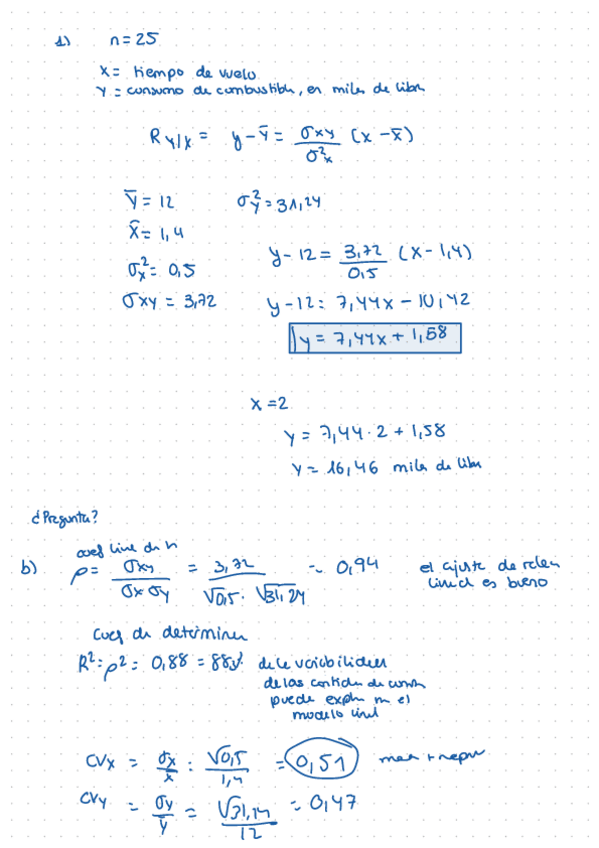 1) n = 25
x = tiempo de vuelo
y = consumo de combustible, en miles de libra
R y|x = y - ȳ = σxy / σ²x (x - x̄)
ȳ = 12 σ²y = 31,24
x̄ = 1,4
y - 12 = 3,72 / 0,5 (x - 1,4)
σ²x = 0,5
σxy = 3,72 y - 12 = 7,44x - 10,42
y = 7,44x + 1,58
x = 2
y = 7,44 · 2 + 1,58
y = 16,46 miles de libra
¿Pregunta?
coef
b) ρ = σxy / σx σy = 3,72 / √0,5 · √31,24 ~ 0,94 el ajuste de
lineal es bueno
coef de determinar
R² = ρ² = 0,88 = 88% de la variabilidad
de las de
puede en el
modelo lineal
CVx = σx / x̄ = √0,5 / 1,4 = 0,51
CVy = σy / ȳ = √31,14 / 12 = 0,47